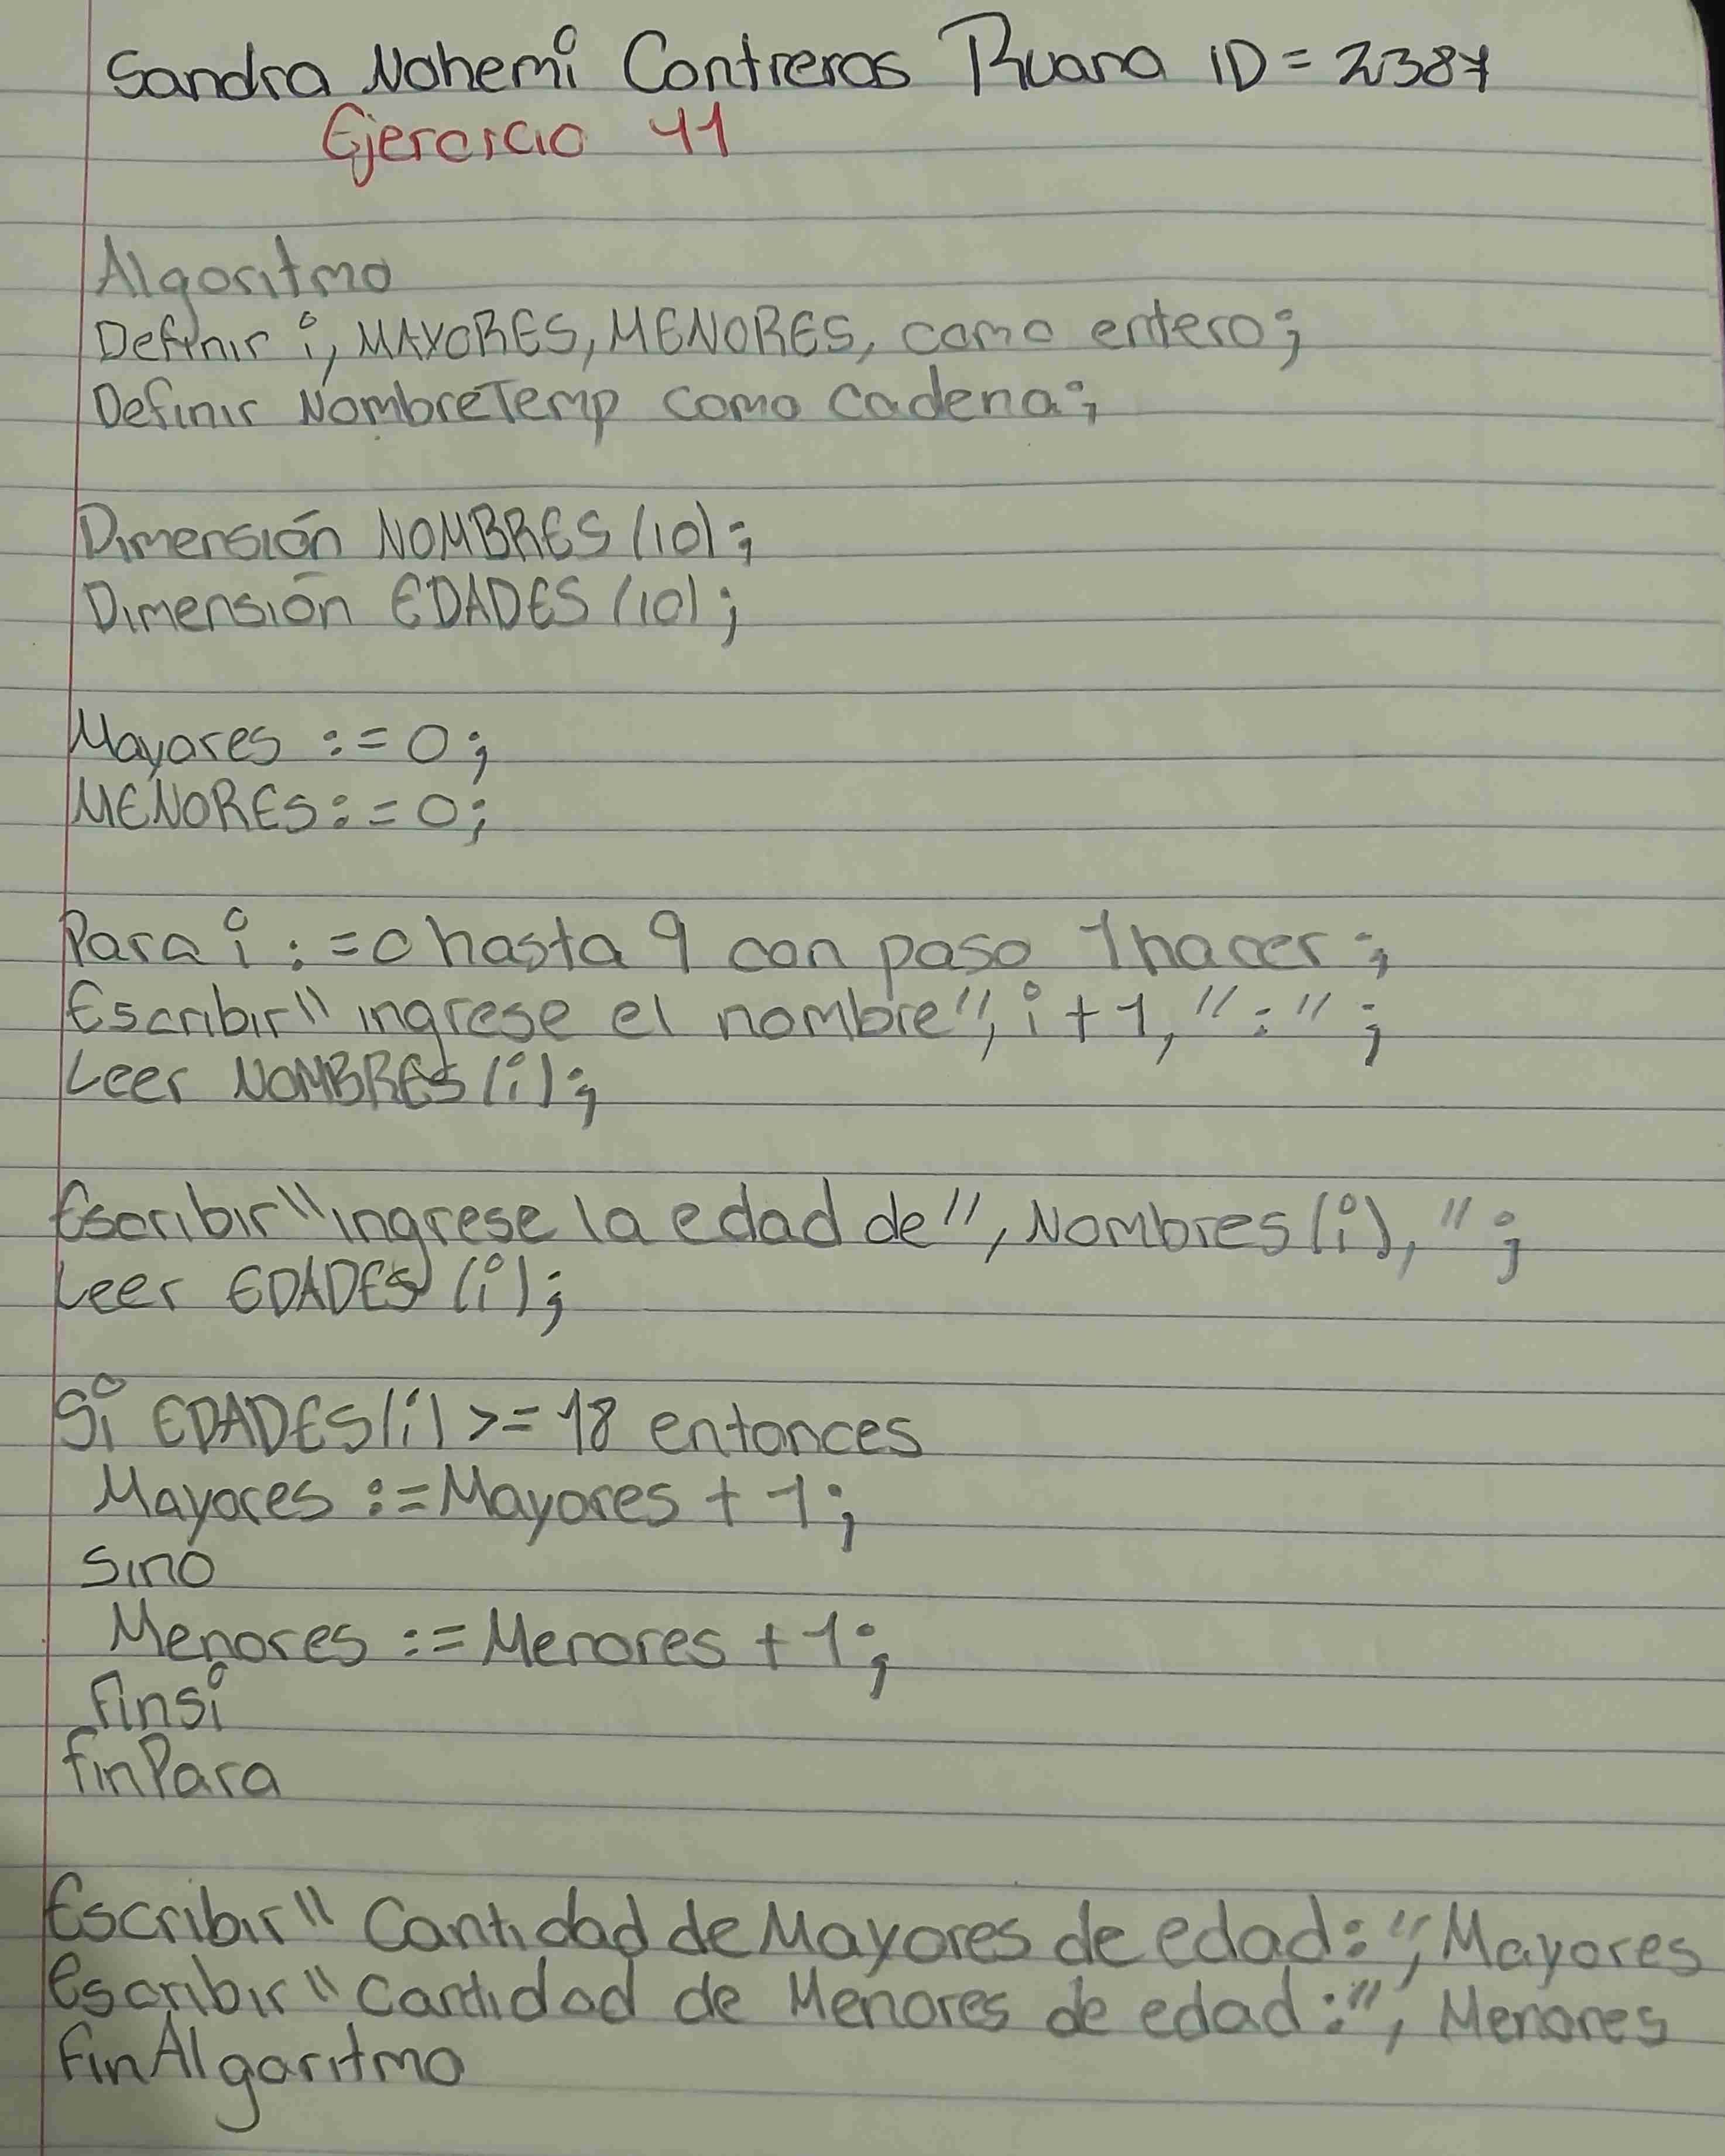 Sandra Nohemi Contreras Ruana ID = 2387
Ejercicio 41
Algoritmo
Definir i, MAYORES, MENORES, como entero;
Definir NombreTemp como cadena;
Dimensión NOMBRES (10);
Dimensión EDADES (10);
Mayores := 0;
MENORES := 0;
Para i := 0 hasta 9 con paso 1 hacer;
Escribir "ingrese el nombre", i + 1, ":";
Leer NOMBRES (i);
Escribir "ingrese la edad de", Nombres (i), ";
Leer EDADES (i);
Si EDADES (i) >= 18 entonces
Mayores := Mayores + 1;
sino
Menores := Menores + 1;
finsi
finPara
Escribir "Cantidad de Mayores de edad:", Mayores
Escribir "Cantidad de Menores de edad:", Menores
finAlgoritmo